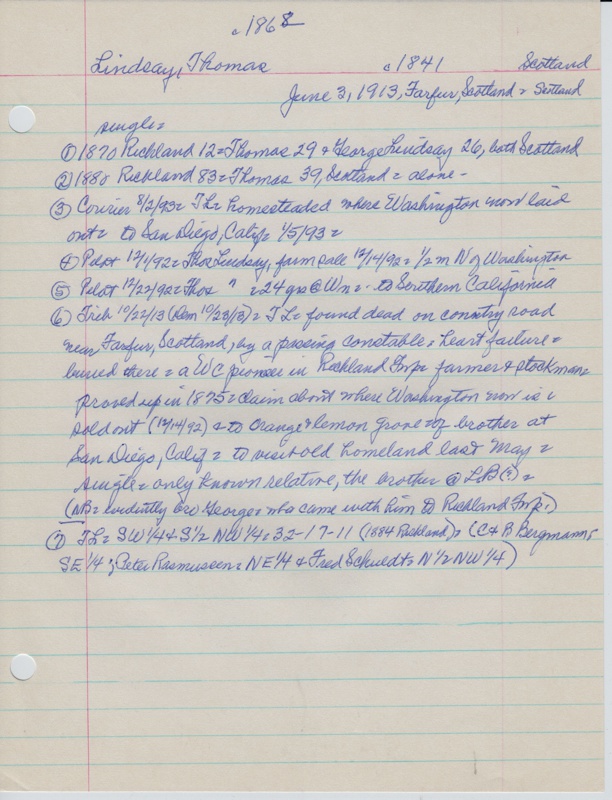 c1868
Lindsay, Thomas c1841 Scotland
June 3, 1913, Farfur, Scotland = Scotland
single =
① 1870 Richland 12 = Thomas 29 & George Lindsay 26, both Scotland
② 1880 Richland 83 = Thomas 39, Scotland = alone -
③ Courier 8/2/93 = TL = homesteaded where Washington now laid
out = to San Diego, Calif = 1/5/93 =
④ Pilot 12/1/92 = Thos Lindsay, farm sale 12/14/92 = 1/2 m N of Washington
⑤ Pilot 12/22/92 = Thos " = 24 yrs @ Wn = to Southern California
⑥ Trib 10/22/13 (Dem 10/23/13) = TL = found dead on country road
near Farfur, Scotland, by a passing constable = heart failure =
buried there = a WC pioneer in Richland Twp = farmer & stockman =
proved up in 1875 = claim about where Washington now is =
sold out (12/14/92) & to orange & lemon grove of brother at
San Diego, Calif = to visit old homeland last May =
single = only known relative, the brother @ LB(?) =
(NB = evidently bro George = who came with him to Richland Twp.)
⑦ TL = SW 1/4 & S 1/2 NW 1/4 = 32-17-11 (1884 Richland) = (C & B Bergmann =
SE 1/4; Peter Rasmussen = NE 1/4 & Fred Schuldt = N 1/2 NW 1/4)